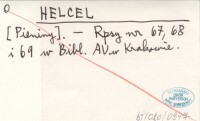 O
HELCEL
[Pieniny]. – Rpsy nr 67, 68
i 69 w Bibl. AV w Krakowie.